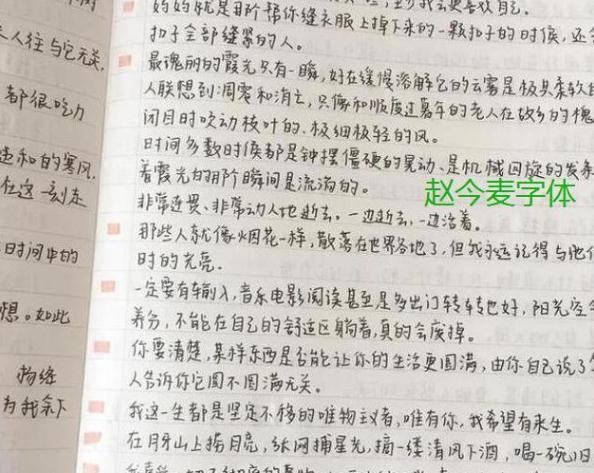 人往与它无关,
都很吃力
和的寒风.
在这一刻走
日时间中的
想。如此
为我余下
妈妈就是那个帮你缝衣服上掉下来的一颗扣子的时候,还
扣子全部缝紧的人。
最瑰丽的霞光只有一瞬,好在缓慢溶解它的云雾是极其柔软
人联想到凋零和消亡,只像和顺度过暮年的老人在故乡的槐
闭目时吹动枝叶的、极细极轻的风。
时间多数时候都是钟摆僵硬的晃动、是机械回旋的发条
着霞光的那阶瞬间是流淌的。
赵今麦字体
非常连畏、非常动人地逝去。一边逝去,一边活着。
那些人就像烟花一样,散落在世界各地了,但我永远记得与他
时的光亮.
一定要有输入,音乐电影阅读甚至是多出门转转也好,阳光空
养分,不能在自己的舒适区躺着,真的会废掉。
你要清楚,某样东西是否能让你的生活更圆满,由你自己说了
人告诉你它圆不圆满无关。
我这一生都是坚定不移的唯物主义者,唯有你,我希望有来生。
在月牙山上捞月亮,纵网捕星光,摘一缕清风下酒,喝一碗旧